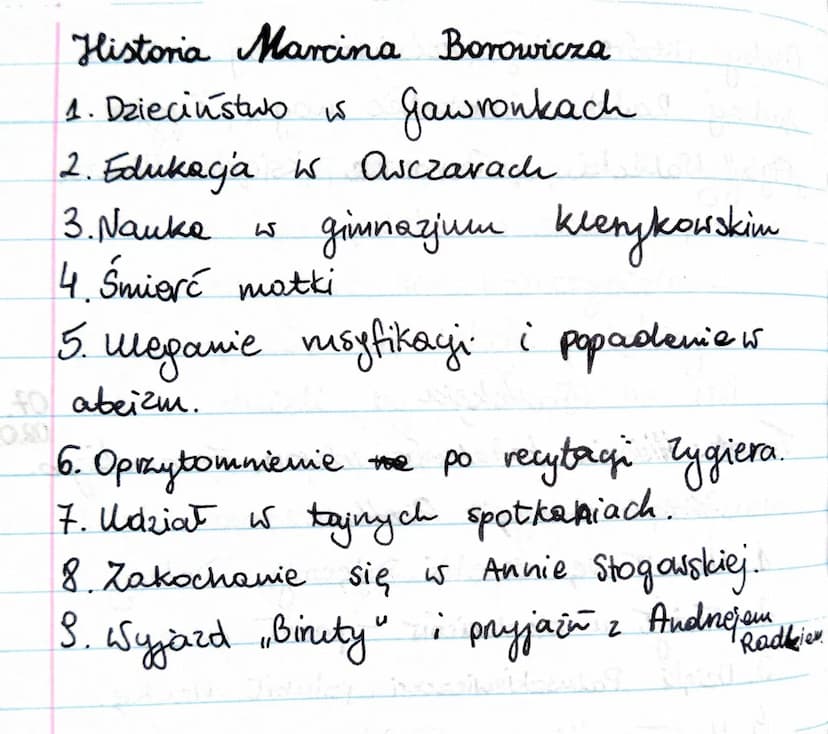 Historia Marcina Borowicza
1. Dzieciństwo w Gawronkach
2. Edukacja w Owczarach
3. Nauka w gimnazjum klerykowskim
4. Śmierć matki
5. Uleganie rusyfikacji i popadenie w
ateizm.
6. Oprzytomnienie na po recytacji Zygiera.
7. Udział w tajnych spotkaniach.
8. Zakochanie się w Annie Stogowskiej.
9. Wyjazd „Biruty" i przyjaźń z Andrzejem
Radkiem